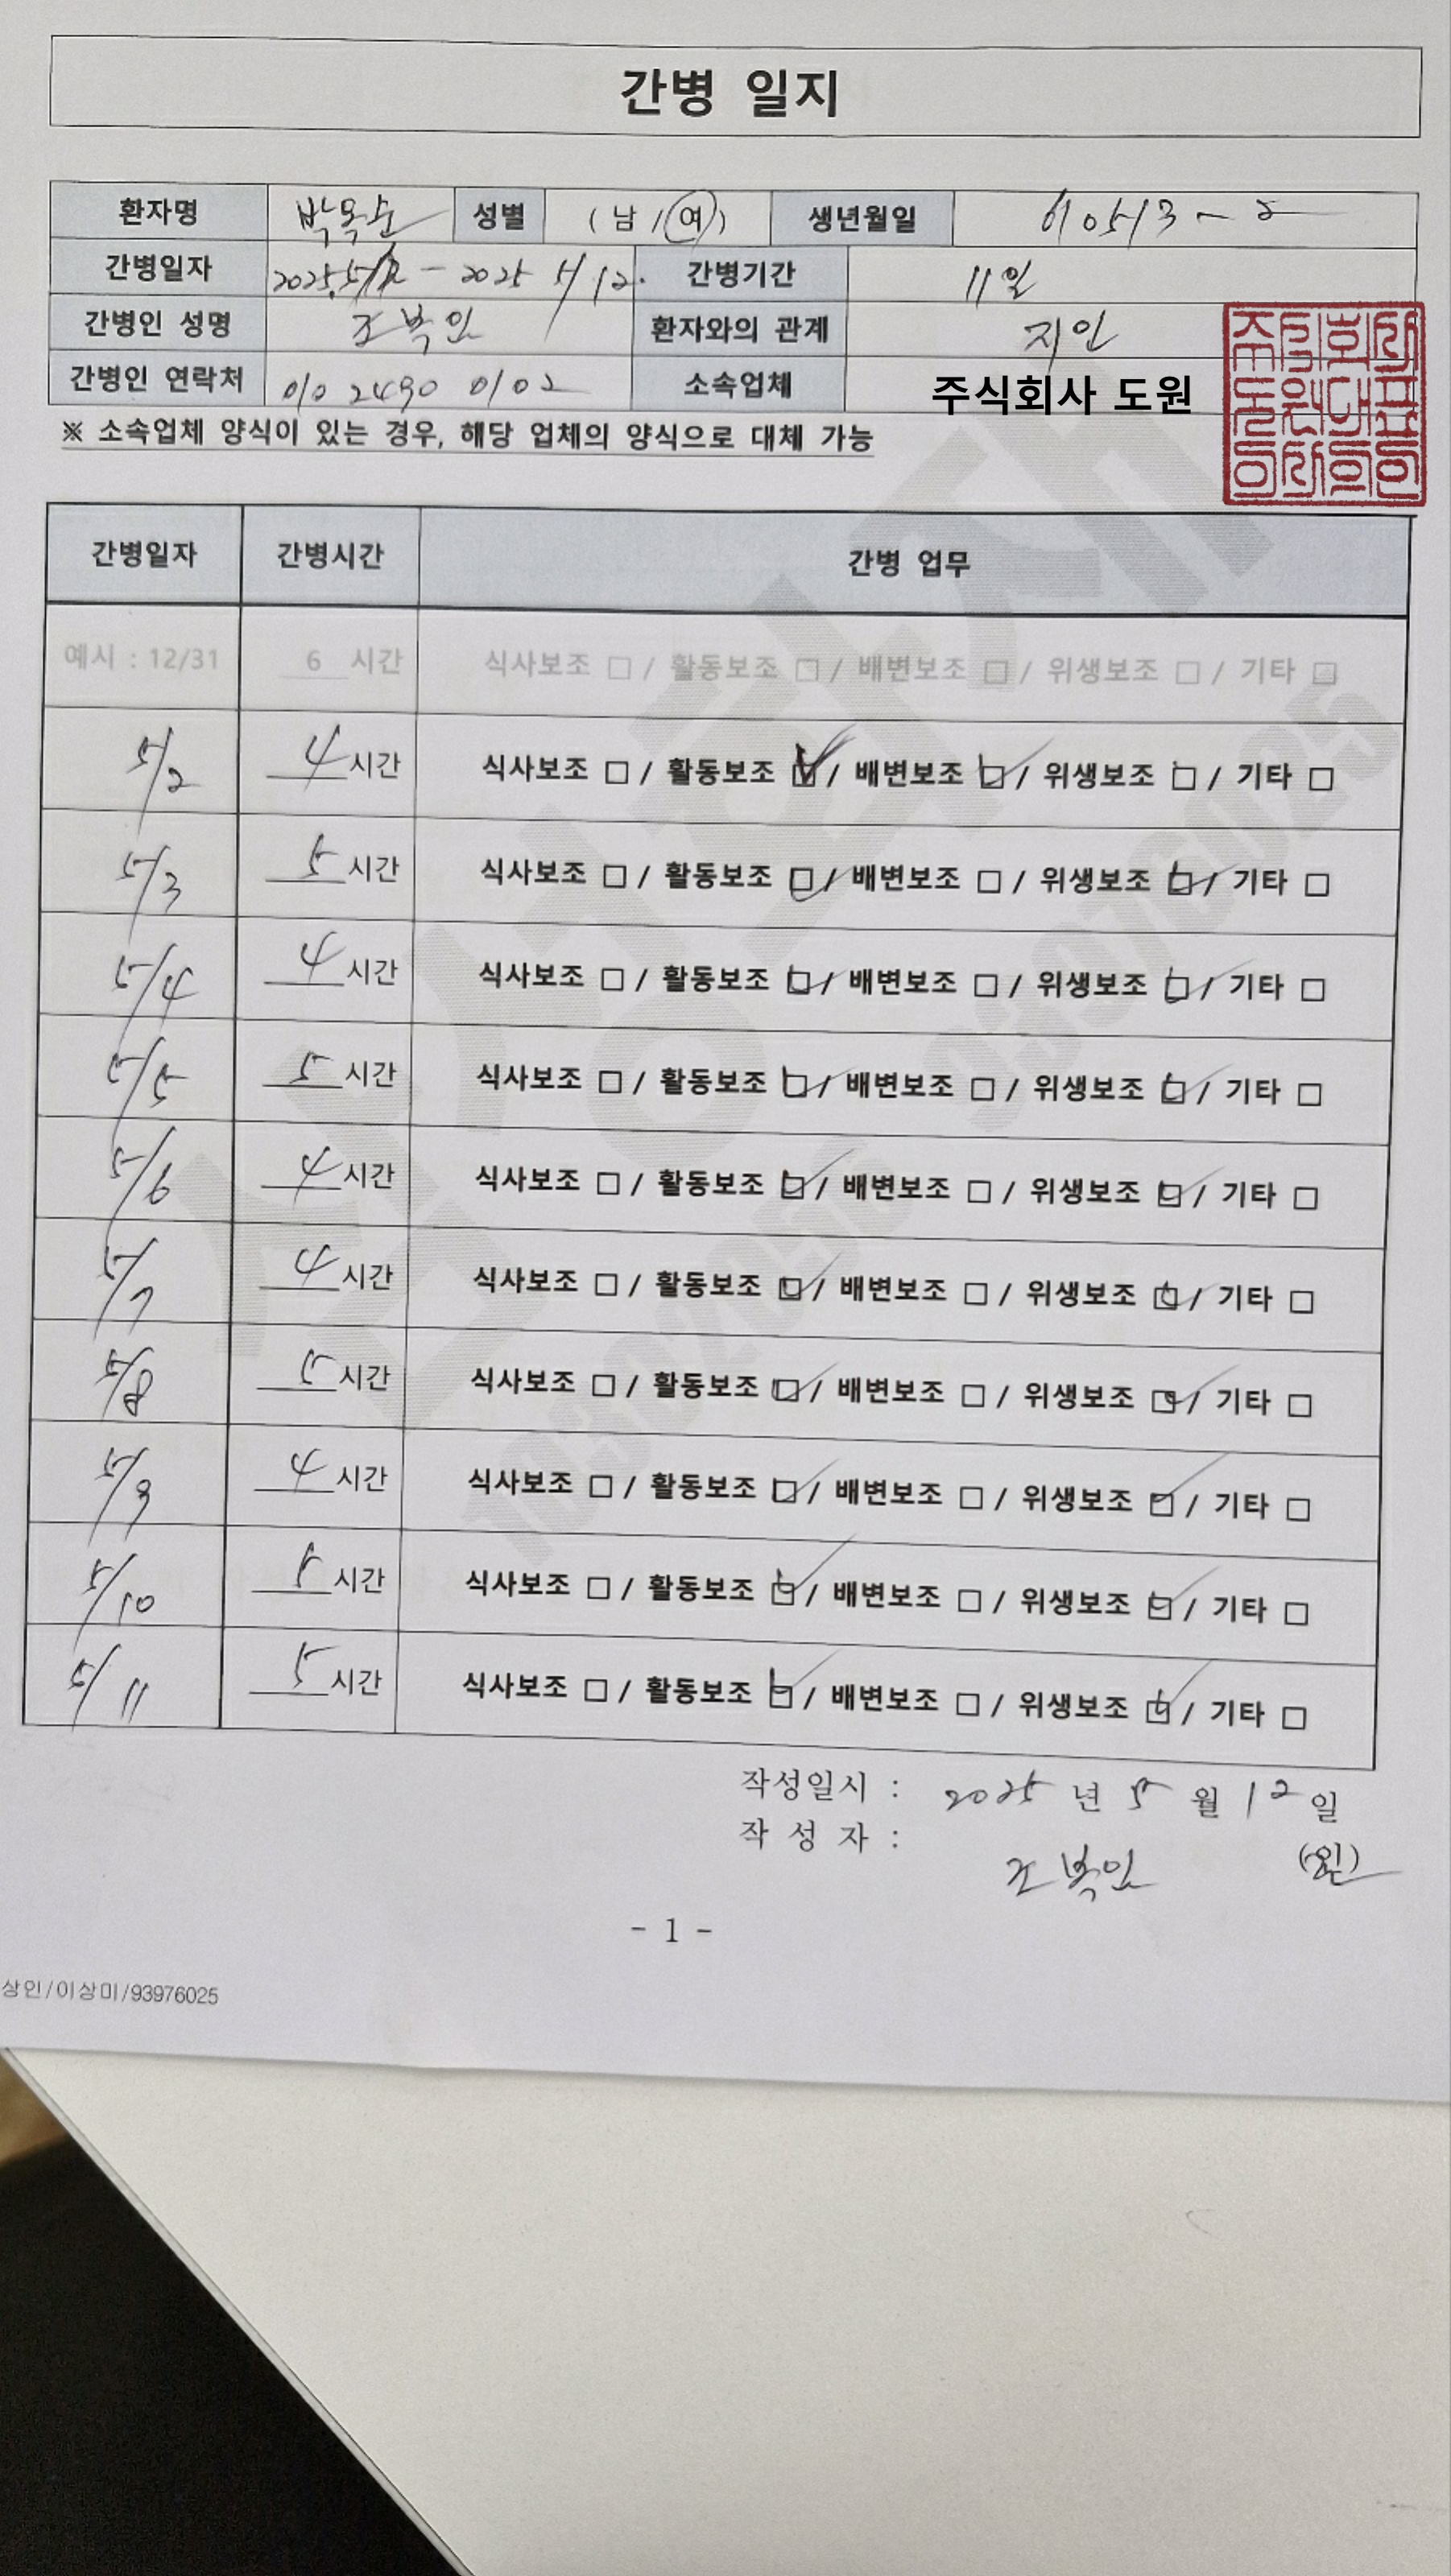 간병 일지
환자명 박옥순 성별 ( 남 / 여 ) 생년월일 610513-2
간병일자 2025.5/2 - 2025 5/12. 간병기간 11일
간병인 성명 조복인 환자와의 관계 지인
간병인 연락처 010 2490 0102 소속업체 주식회사 도원
※ 소속업체 양식이 있는 경우, 해당 업체의 양식으로 대체 가능
간병일자 간병시간 간병 업무
예시 : 12/31 6 시간 식사보조 □ / 활동보조 □ / 배변보조 □ / 위생보조 □ / 기타 □
5/2 4 시간 식사보조 □ / 활동보조 ☑ / 배변보조 ☑ / 위생보조 □ / 기타 □
5/3 5 시간 식사보조 □ / 활동보조 ☑ / 배변보조 □ / 위생보조 ☑ / 기타 □
5/4 4 시간 식사보조 □ / 활동보조 ☑ / 배변보조 □ / 위생보조 ☑ / 기타 □
5/5 5 시간 식사보조 □ / 활동보조 ☑ / 배변보조 □ / 위생보조 ☑ / 기타 □
5/6 4 시간 식사보조 □ / 활동보조 ☑ / 배변보조 □ / 위생보조 ☑ / 기타 □
5/7 4 시간 식사보조 □ / 활동보조 ☑ / 배변보조 □ / 위생보조 ☑ / 기타 □
5/8 5 시간 식사보조 □ / 활동보조 ☑ / 배변보조 □ / 위생보조 ☑ / 기타 □
5/9 4 시간 식사보조 □ / 활동보조 ☑ / 배변보조 □ / 위생보조 ☑ / 기타 □
5/10 5 시간 식사보조 □ / 활동보조 ☑ / 배변보조 □ / 위생보조 ☑ / 기타 □
5/11 5 시간 식사보조 □ / 활동보조 ☑ / 배변보조 □ / 위생보조 ☑ / 기타 □
삼성화재
93976025
작성일시 : 2025 년 5 월 12 일
작 성 자 :
조복인 (인)
- 1 -
상인/이상미/93976025